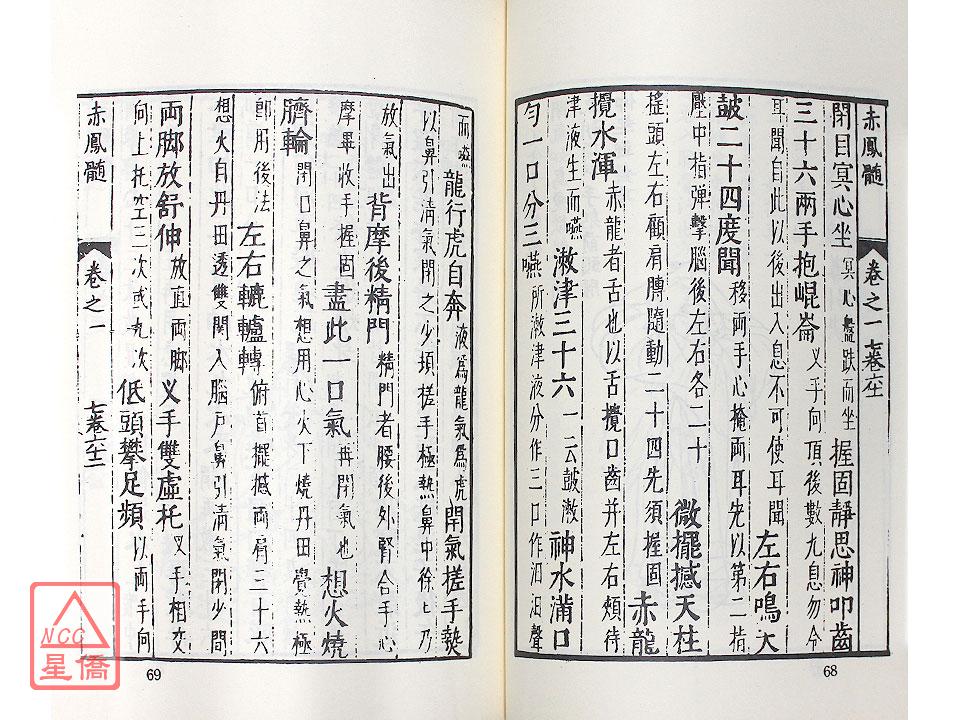 赤鳳髓 卷之一
閉目冥心坐 冥心盤趺而坐 握固靜思神叩齒
三十六兩手抱崐崙 叉手向頂後數九息勿令
耳聞自此以後出入息不可使耳聞 左右鳴天
鼓二十四度聞 移兩手心掩兩耳先以第二指
壓中指彈擊腦後左右各二十 微擺撼天柱
搖頭左右顧肩膊隨動二十四先須握固 赤龍
攪水渾 赤龍者舌也以舌攪口齒并左右頰待
津液生而嚥 漱津三十六 一云鼓漱 神水滿口
勻一口分三嚥 所漱津液分作三口作汩汩聲
68
而嚥 龍行虎自奔 液爲龍氣爲虎 閉氣搓手熱
以鼻引清氣閉之少頃搓手極熱鼻中徐上乃
放氣出 背摩後精門 精門者腰後外腎合手心
摩畢收手握固 盡此一口氣 再閉氣也 想火燒
臍輪 閉口鼻之氣想用心火下燒丹田覺熱極
即用後法 左右轆轤轉 俯首擺撼兩肩三十六
想火自丹田透雙關入腦戶鼻引清氣閉少間
兩脚放舒伸 放直兩脚 叉手雙虛托 叉手相交
向上托空三次或九次 低頭攀足頻 以兩手向
赤鳳髓 卷之一
69
NCC
星僑